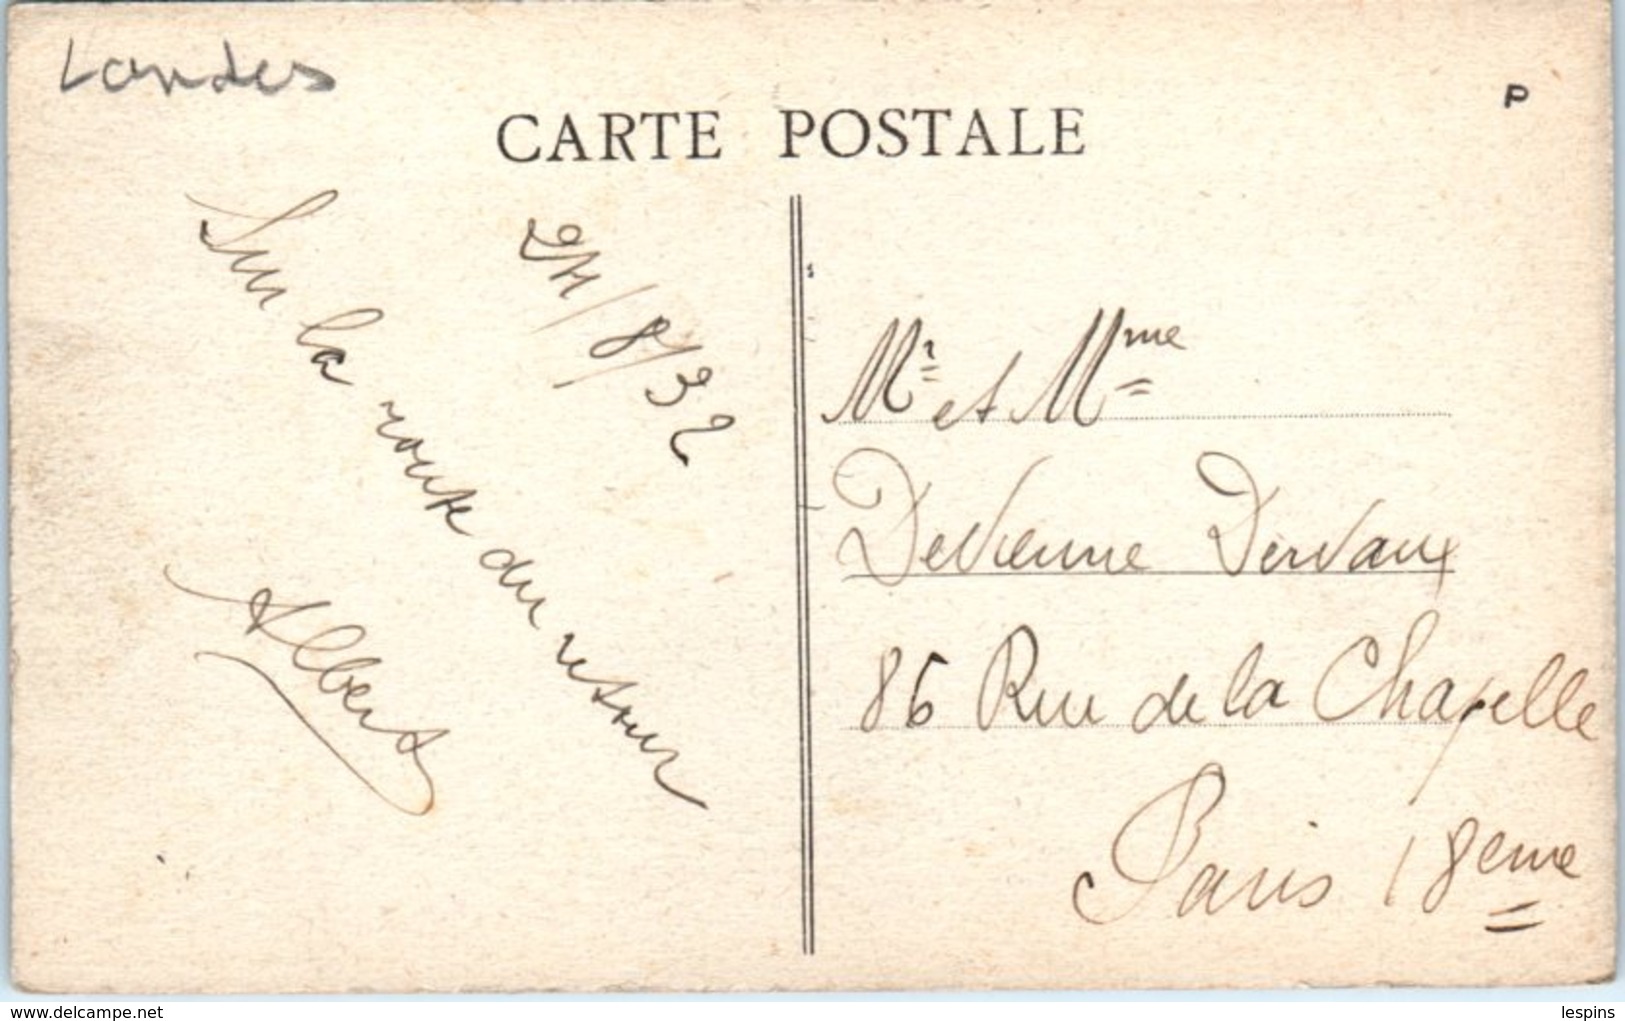 Landes
P
CARTE POSTALE
24/8/32
Sur la route du retour
Albert
Mr et Mme
DeVienne Dervaux
86 Rue de la Chapelle
Paris 18eme
www.delcampe.net
lespins